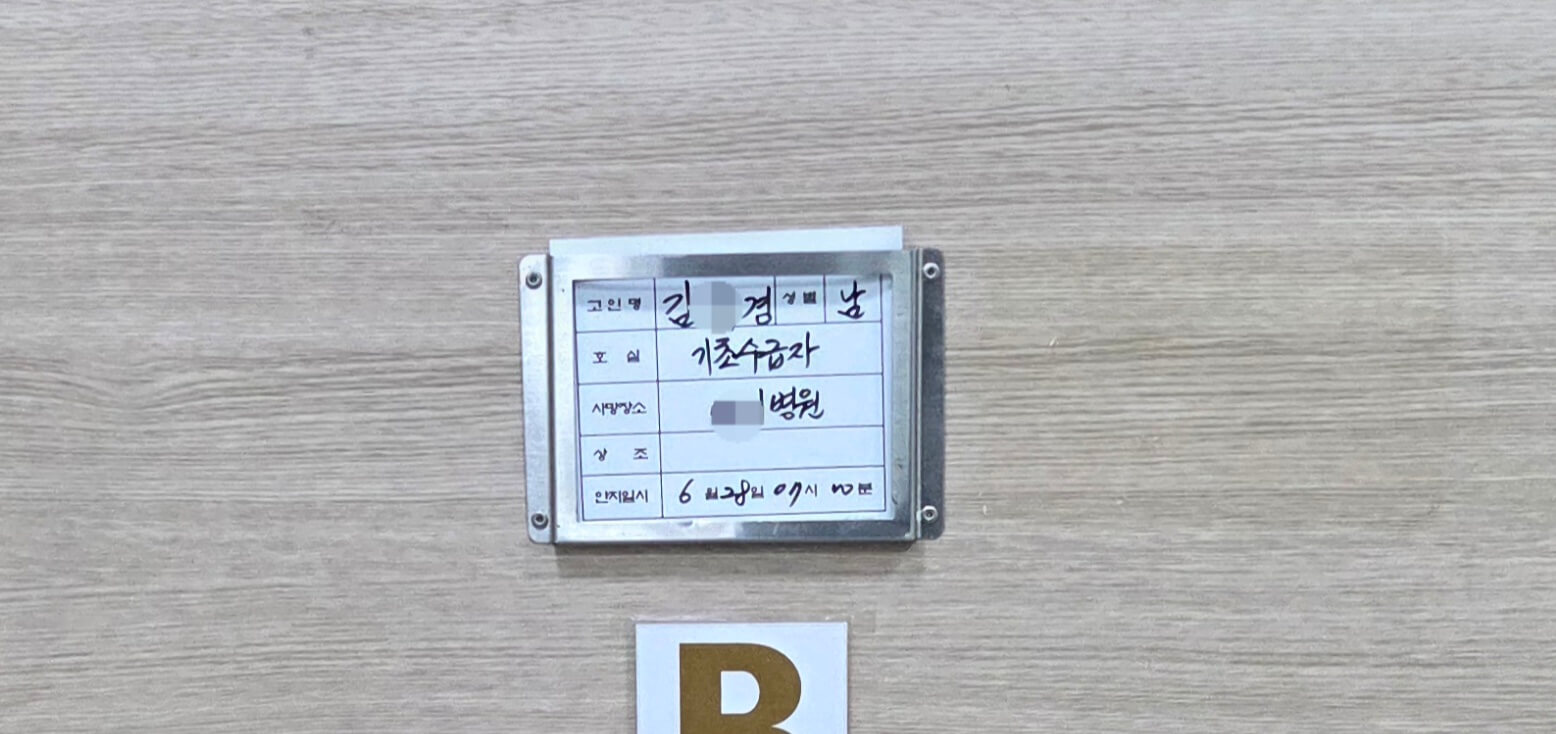 고인명 김 경 성별 남
호실 기초수급자
사망장소 병원
상조
안치일시 6월 28일 07시 00분
B